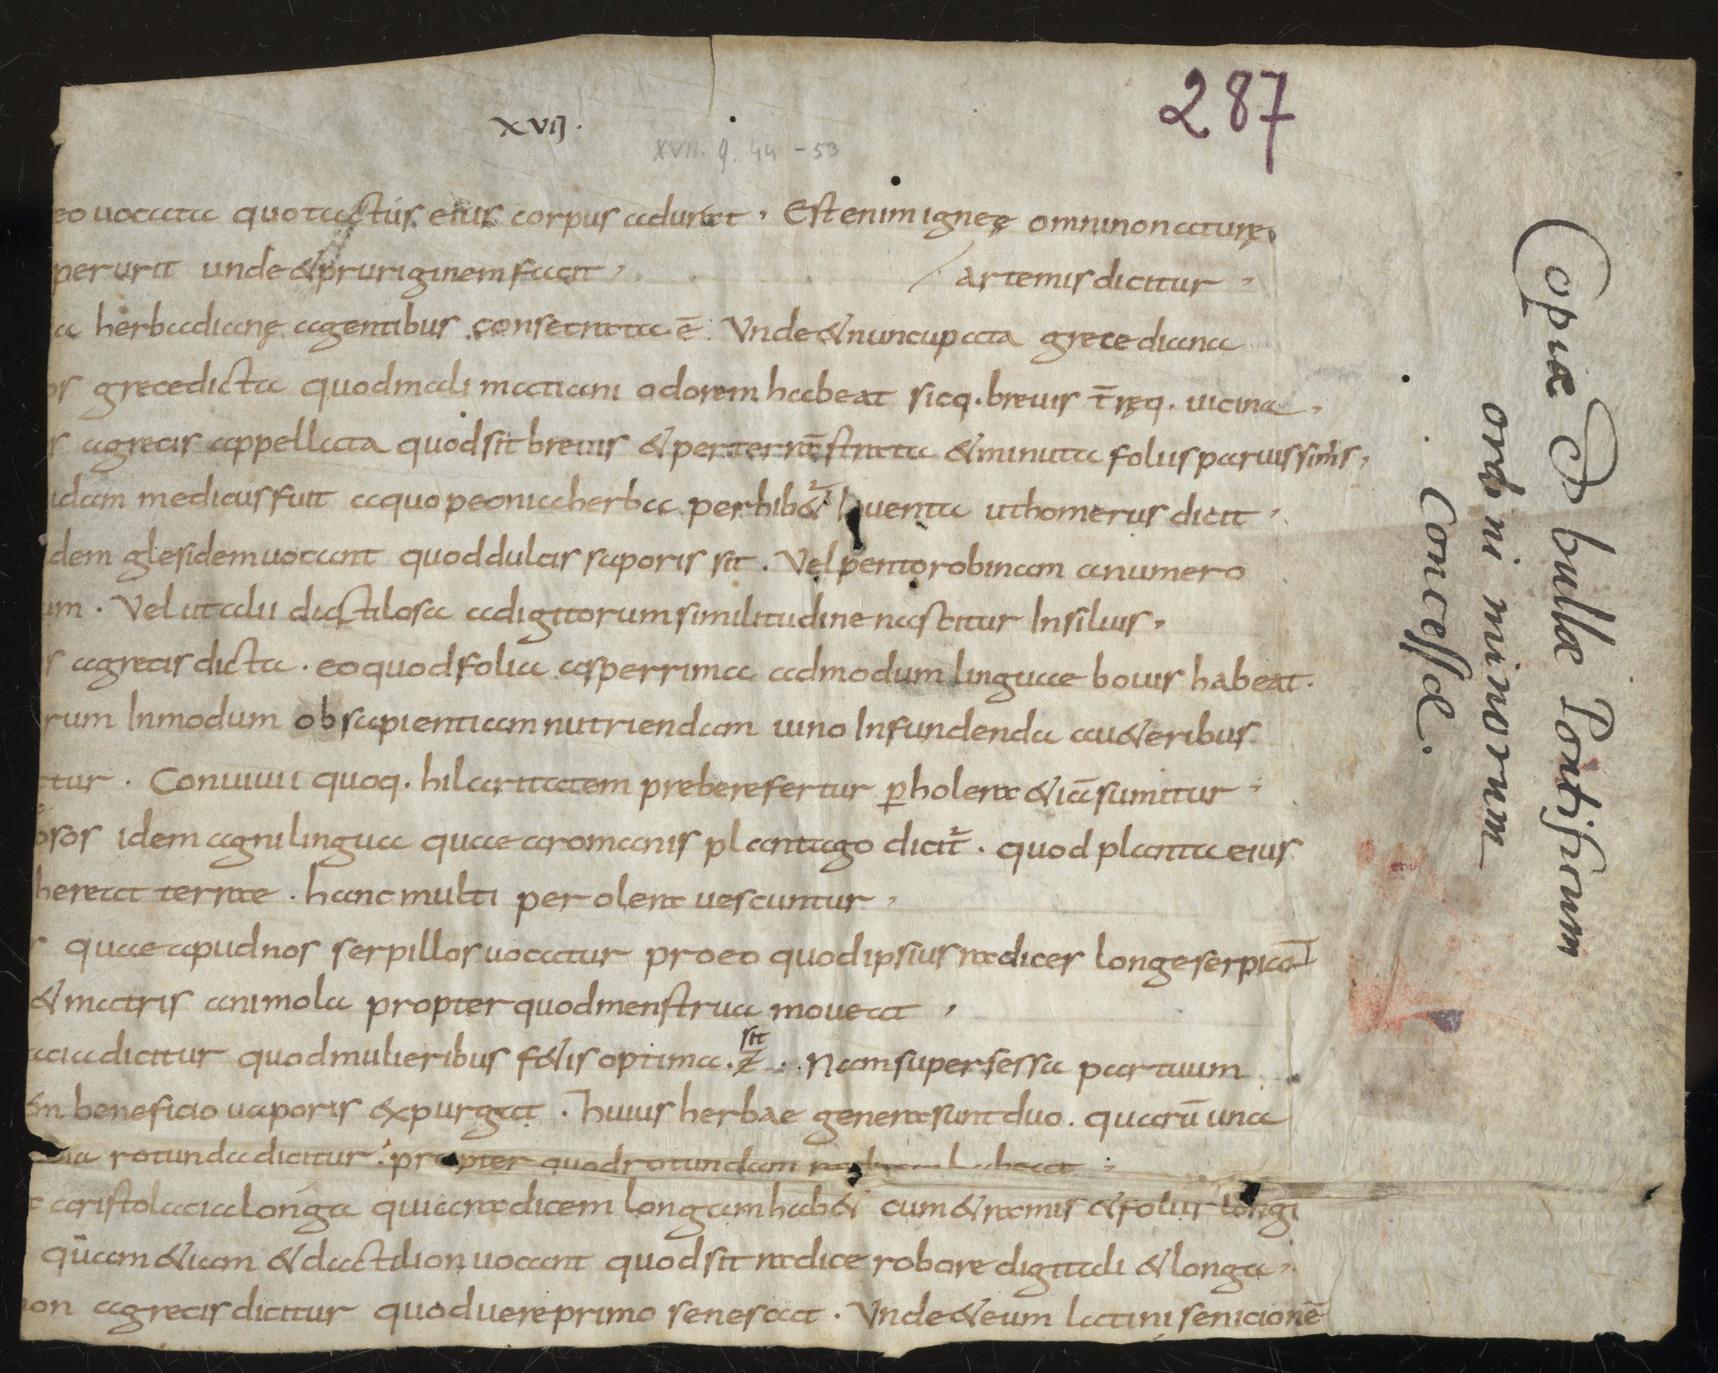 287
xvij.
XVII. 9. 44 - 53
eo uocata quo tactus eius corpus adurat, Est enim igneę omnino naturę
perurit unde & pruriginem facit,
artemis dicitur,
a herba dianę a gentibus consecrata ē. Vnde & nuncupata grece diana
os grece dicta quod mali matiani odorem habeat sicq. breuis t̄ręq. uicina,
s a grecis appellata quod sit breuis & per terrā strata & minuta foliis paruissimis,
idam medicus fuit a quo peonia herba perhib& Inuenta ut homerus dicit,
dem glesidem uocant quod dulcis saporis sit. Vel pentorobinam a numero
um. Vel ut alii dactilosa ad digitorum similitudine nascitur In siluis,
s a grecis dicta. eo quod folia asperrima ad modum linguae bouis habeat.
rum Inmodum ob sapientiam nutriendam uino Infundenda au&eribus
tur. Conuiuii quoq. hilaritatem prebere fertur ꝑ holera & iā sumitur,
osos idem agni lingua quae a romanis plantago dicit̄. quod planta eius
hereat terrae. hanc multi per olera uescuntur,
r quae apud nos serpillos uocatur pro eo quod ipsius radices longe serpiant
& matris animola propter quod menstrua moueat,
acia dicitur quod mulieribus f&is optima. sit. Nam supersessa partuum
em beneficio uaporis expurgat. huius herbae genera sunt duo. quarū una
cia rotunda dicitur. propter quod rotundam radicem habeat.
aristolacia longa quia radicem longam hab& cum & ramis & foliis longi
quam & iam & dactilion uocant quod sit radice robore digitali & longa,
on a grecis dicitur quod uere primo senescat. Vnde & eum latini senicionē
Copiæ D bullæ Pontificum
ordini minorum
Concessæ.